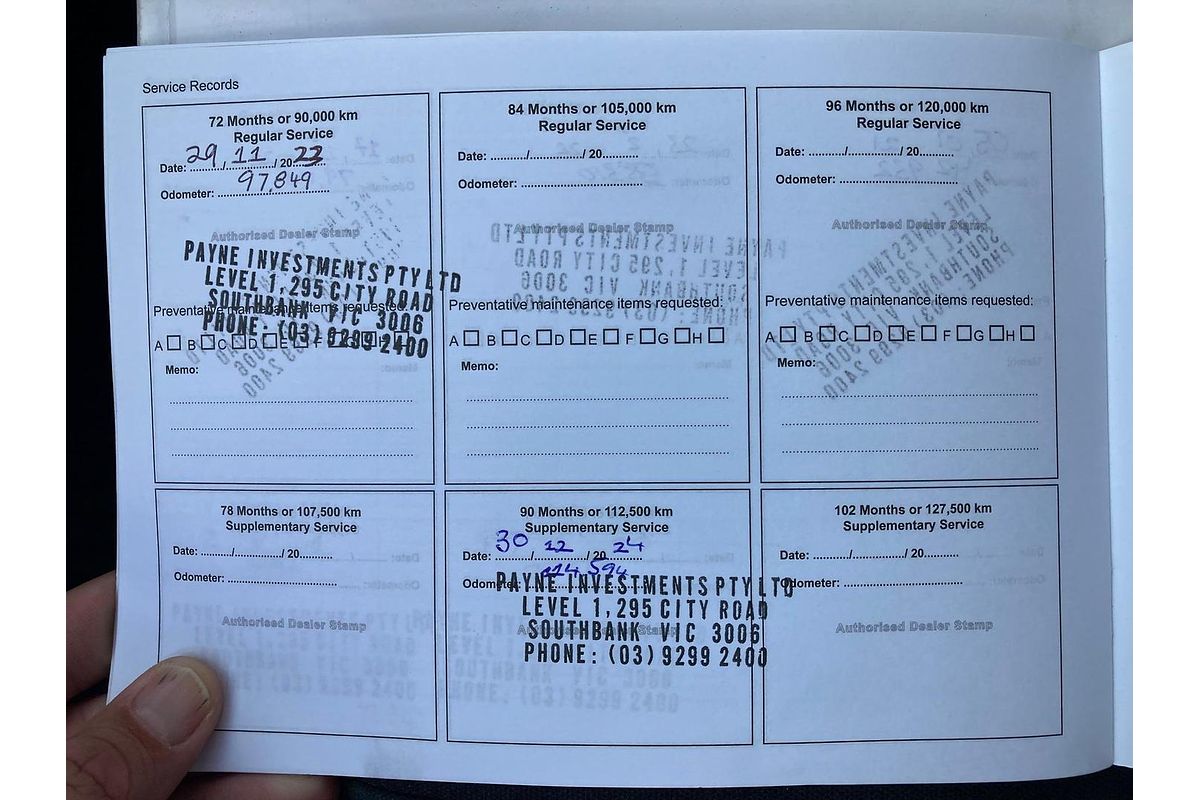 Service Records
72 Months or 90,000 km
Regular Service
Date: 29/11/2023
Odometer: 97,849
Authorised Dealer Stamp
PAYNE INVESTMENTS PTY LTD
LEVEL 1, 295 CITY ROAD
SOUTHBANK VIC 3006
PHONE: (03) 9299 2400
Preventative maintenance items requested:
A B C D E F G H
Memo:
84 Months or 105,000 km
Regular Service
Date: ........../.............../ 20..........
Odometer: ...................................
Authorised Dealer Stamp
Preventative maintenance items requested:
A B C D E F G H
Memo:
96 Months or 120,000 km
Regular Service
Date: ........../.............../ 20..........
Odometer: ...................................
Authorised Dealer Stamp
Preventative maintenance items requested:
A B C D E F G H
Memo:
78 Months or 107,500 km
Supplementary Service
Date: ........../.............../ 20..........
Odometer: ...................................
Authorised Dealer Stamp
90 Months or 112,500 km
Supplementary Service
Date: 30/12/2024
Odometer: 114,594
PAYNE INVESTMENTS PTY LTD
LEVEL 1, 295 CITY ROAD
Authorised Dealer Stamp
SOUTHBANK VIC 3006
PHONE: (03) 9299 2400
102 Months or 127,500 km
Supplementary Service
Date: ........../.............../ 20..........
Odometer: ...................................
Authorised Dealer Stamp